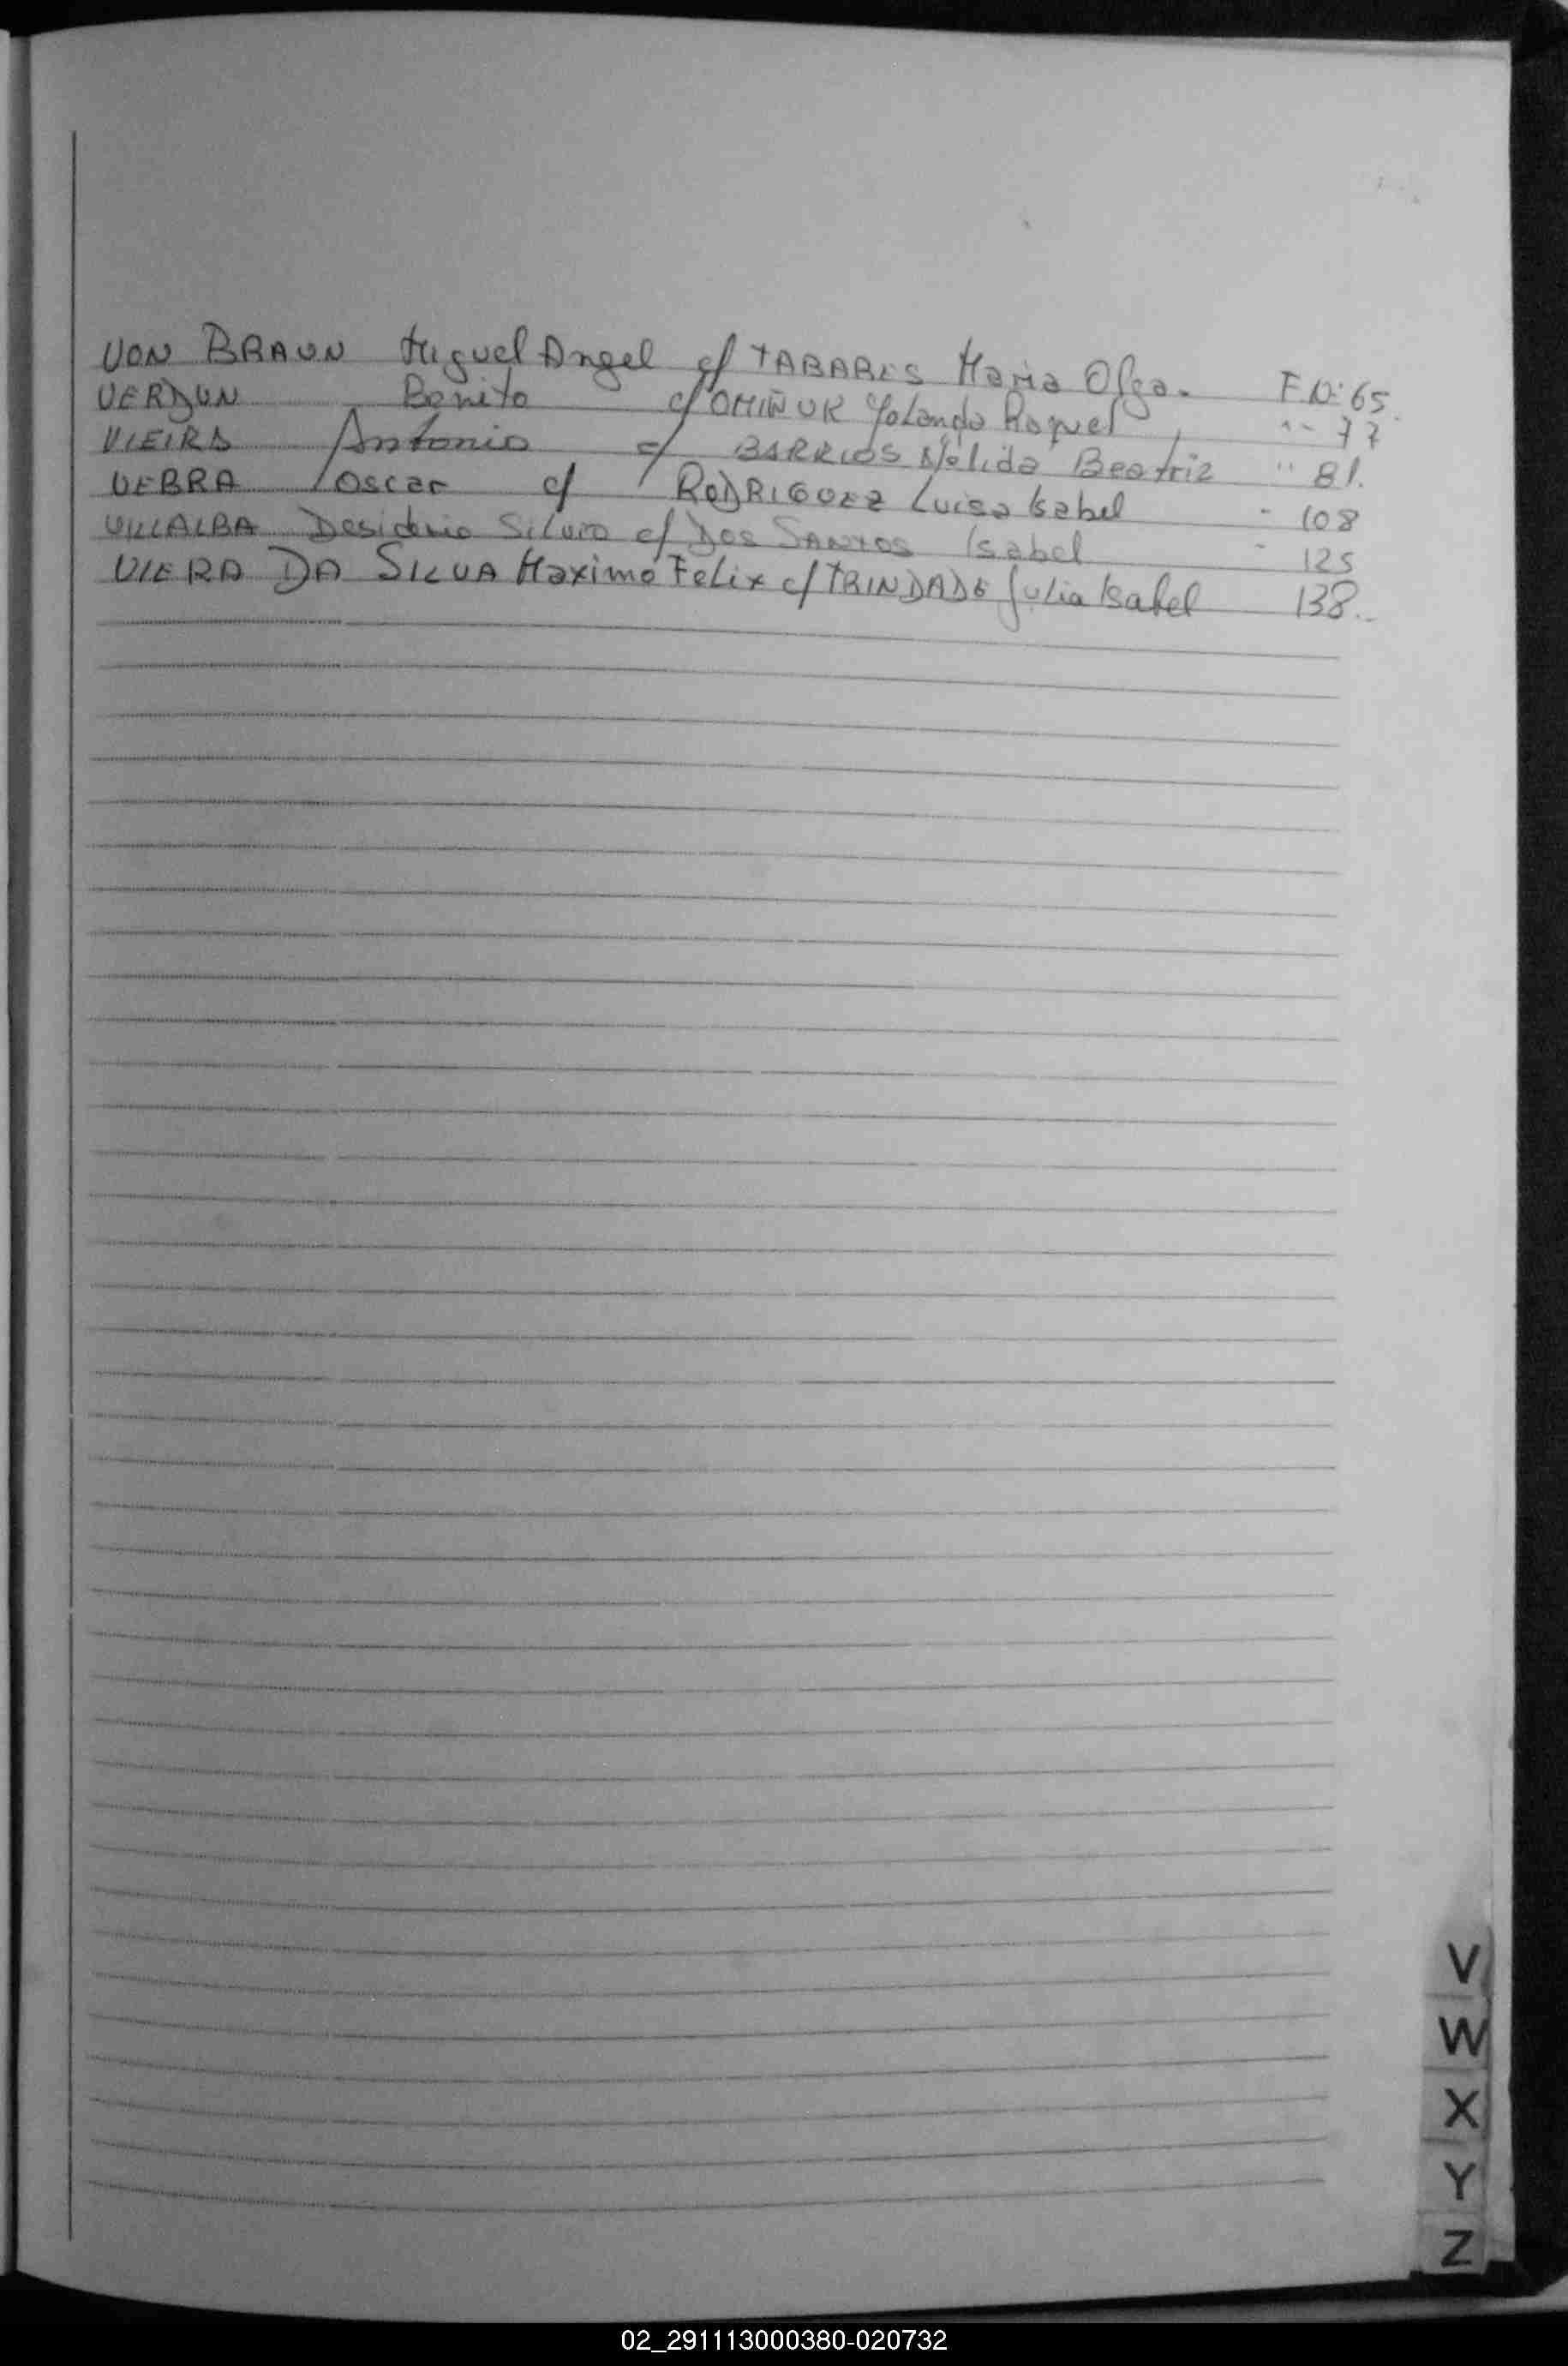 VON BRAUN Miguel Angel c/ TABARES Maria Olga. F.N: 65.
VERDUN Benito c/ OMIÑUK Yolanda Raquel " 77
VIEIRA Antonio c/ BARRIOS Nélida Beatriz " 81.
VEBRA Oscar c/ RODRIGUEZ Luisa Isabel " 108
VILLALBA Desiderio c/ Dos SANTOS Isabel " 125
VIERA DA SILVA Maximo Felix c/ TRINDADE Julia Isabel 138.
V
W
X
Y
Z
02_291113000380-020732